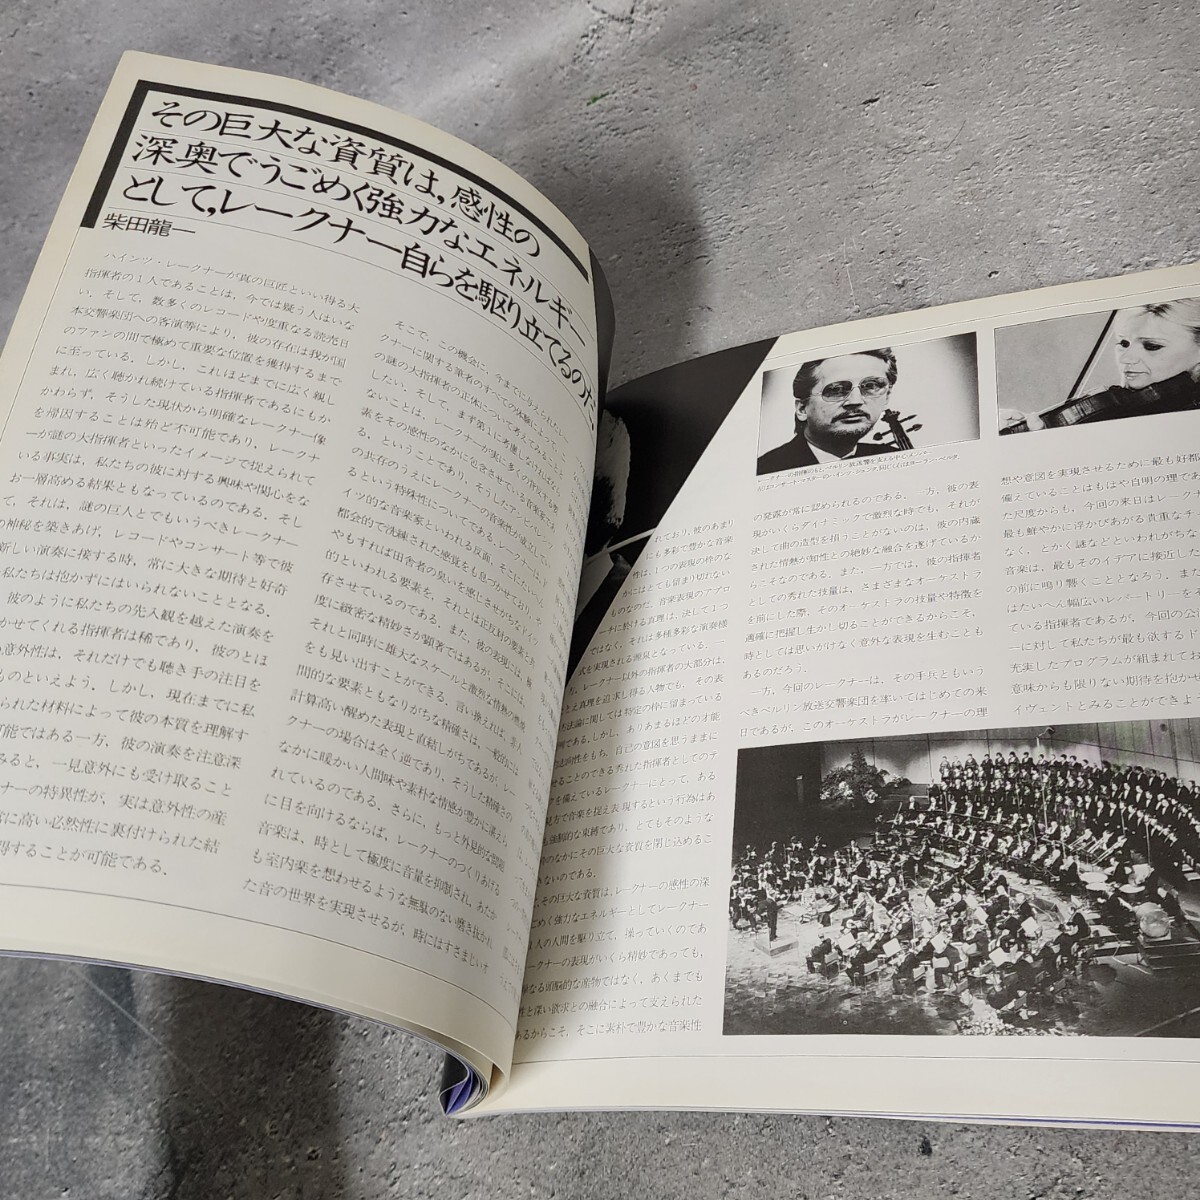 その巨大な資質は，感性の
深奥でうごめく強力なエネルギー
として，レークナー自らを駆り立てるのだ。
柴田龍一
ハインツ・レークナーが真の巨匠といい得る大
指揮者の１人であることは，今では疑う人はいな
い．そして，数多くのレコードや度重なる読売日
本交響楽団への客演等により，彼の存在は我が国
のファンの間で極めて重要な位置を獲得するまで
に至っている．しかし，これほどまでに広く親し
まれ，広く聴かれ続けている指揮者であるにもか
かわらず，そうした現状から明確なレークナー像
を帰因することは殆ど不可能であり，レークナ
ーが謎の大指揮者といったイメージで捉えられて
いる事実は，私たちの彼に対する興味や関心をな
お一層高める結果ともなっているのである．そし
て，それは，謎の巨人とでもいうべきレークナー
の神秘を築きあげ，レコードやコンサート等で彼
新しい演奏に接する時，常に大きな期待と好奇
私たちは抱かずにはいられないこととなる．
彼のように私たちの先入観を越えた演奏を
かせてくれる指揮者は稀であり，彼のとほ
意外性は，それだけでも聴き手の注目を
ものといえよう．しかし，現在までに私
られた材料によって彼の本質を理解す
可能ではある一方，彼の演奏を注意深
みると，一見意外にも受け取ること
ナーの特異性が，実は意外性の産
常に高い必然性に裏付けられた結
得することが可能である．
そこで，この機会に，今までに与えられたレー
クナーに関する筆者のすべての体験によって，こ
の謎の大指揮者の正体について考えてみることに
したい．そして，まず第１に考慮しなければなら
ないことは，レークナーが実に多くの背反する要
素をその感性のなかに包含させている音楽家であ
る，ということであり，そうしたアンビバレンツ
の共存のうえにレークナーの音楽性が成立してい
るという特殊性についてである．レークナーはド
イツ的な音楽家といわれる反面，そこにたいへん
都会的で洗練された感覚をも息づかせており，や
やもすれば田舎者の臭いを感じさせがちなドイツ
的といわれる要素を，それとは正反対の要素と共
存させているのである．また，彼の表現には，極
度に緻密な精妙さが顕著ではあるが，そこには，
それと同時に雄大なスケールと激烈な情熱の燃焼
をも見い出すことができる．言い換えれば，非人
間的な要素ともなりがちな精確さは，一般的には
計算高い醒めた表現と直結しがちであるが，レー
クナーの場合は全く逆であり，そうした精確さの
なかに暖かい人間味や素朴な情感が豊かに湛えら
れているのである．さらに，もっと外見的な問題
に目を向けるならば，レークナーのつくりあげる
音楽は，時として極度に音量を抑制され，あたか
も室内楽を想わせるような無駄のない磨き抜かれ
た音の世界を実現させるが，時にはすさまじいオ
れており，彼のあまり
にも多彩で豊かな音楽
性は，１つの表現の枠のな
かにはとても留まり切れない
ものなのだ．音楽表現のアプロ
ーチに於ける真理は，決して１つ
ではなく，それは多種多彩な演奏様
式を実現される源泉となっている．
レークナー以外の指揮者の大部分は，
真理を追求し得る人物でも，その表
現方法論に関しては特定の枠に留まっている
である．しかし，ありあまるほどの才能
志向性をもち，自己の意図を思うままに
させることのできる秀れた指揮者としてのテ
クを備えているレークナーにとって，ある
見方で音楽を捉え表現するという行為はあ
強制的な束縛であり，とてもそのような
なかにその巨大な資質を閉じ込めるこ
できないのである．
その巨大な資質は，レークナーの感性の深
ごめく強力なエネルギーとしてレークナー
１人の人間を駆り立て，操っていくのであ
ークナーの表現がいくら精妙であっても，
単なる頭脳的な産物ではなく，あくまでも
性と深い欲求との融合によって支えられた
であるからこそ，そこに素朴で豊かな音楽性
レークナーの指揮のもとベルリン放送響を支える中心メンバー，
の発露が常に認められるのである．一方，彼の表
現がいくらダイナミックで激烈な時でも，それが
決して曲の造型を損うことがないのは，彼の内蔵
された情熱が知性との絶妙な融合を遂げているか
らこそなのである．また，一方では，彼の指揮者
としての秀れた技量は，さまざまなオーケストラ
を前にした際，そのオーケストラの技量や特徴を
適確に把握し生かし切ることができるからこそ，
時としては思いがけなく意外な表現を生むことも
あるのだろう．
一方，今回のレークナーは，その手兵ともいう
べきベルリン放送交響楽団を率いてはじめての来
日であるが，このオーケストラがレークナーの理
想や意図を実現させるために最も好都
備えていることはもはや自明の理であ
た尺度からも，今回の来日はレークナ
最も鮮やかに浮かびあがる貴重なチ
なく，とかく謎などといわれがちな
音楽は，最もそのイデアに接近した
の前に鳴り響くこととなろう．また
はたいへん幅広いレパートリーを
ている指揮者であるが，今回の公
ーに対して私たちが最も欲する
充実したプログラムが組まれてお
意味からも限りない期待を抱かせ
イヴェントとみることができよ